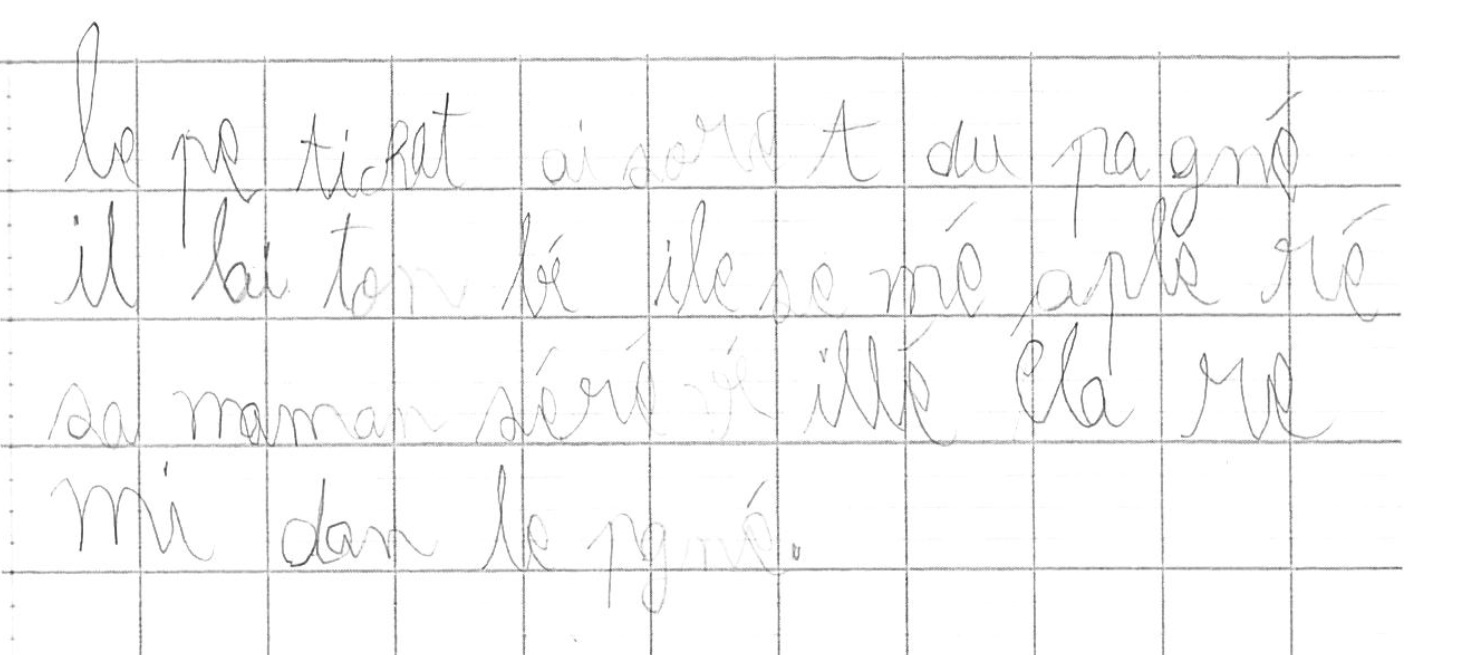 le pe tichat ai sore t du pagné
il lai ton bé ile se mé aple ré
sa maman séré vé illé éla re
mi dan le pgné.